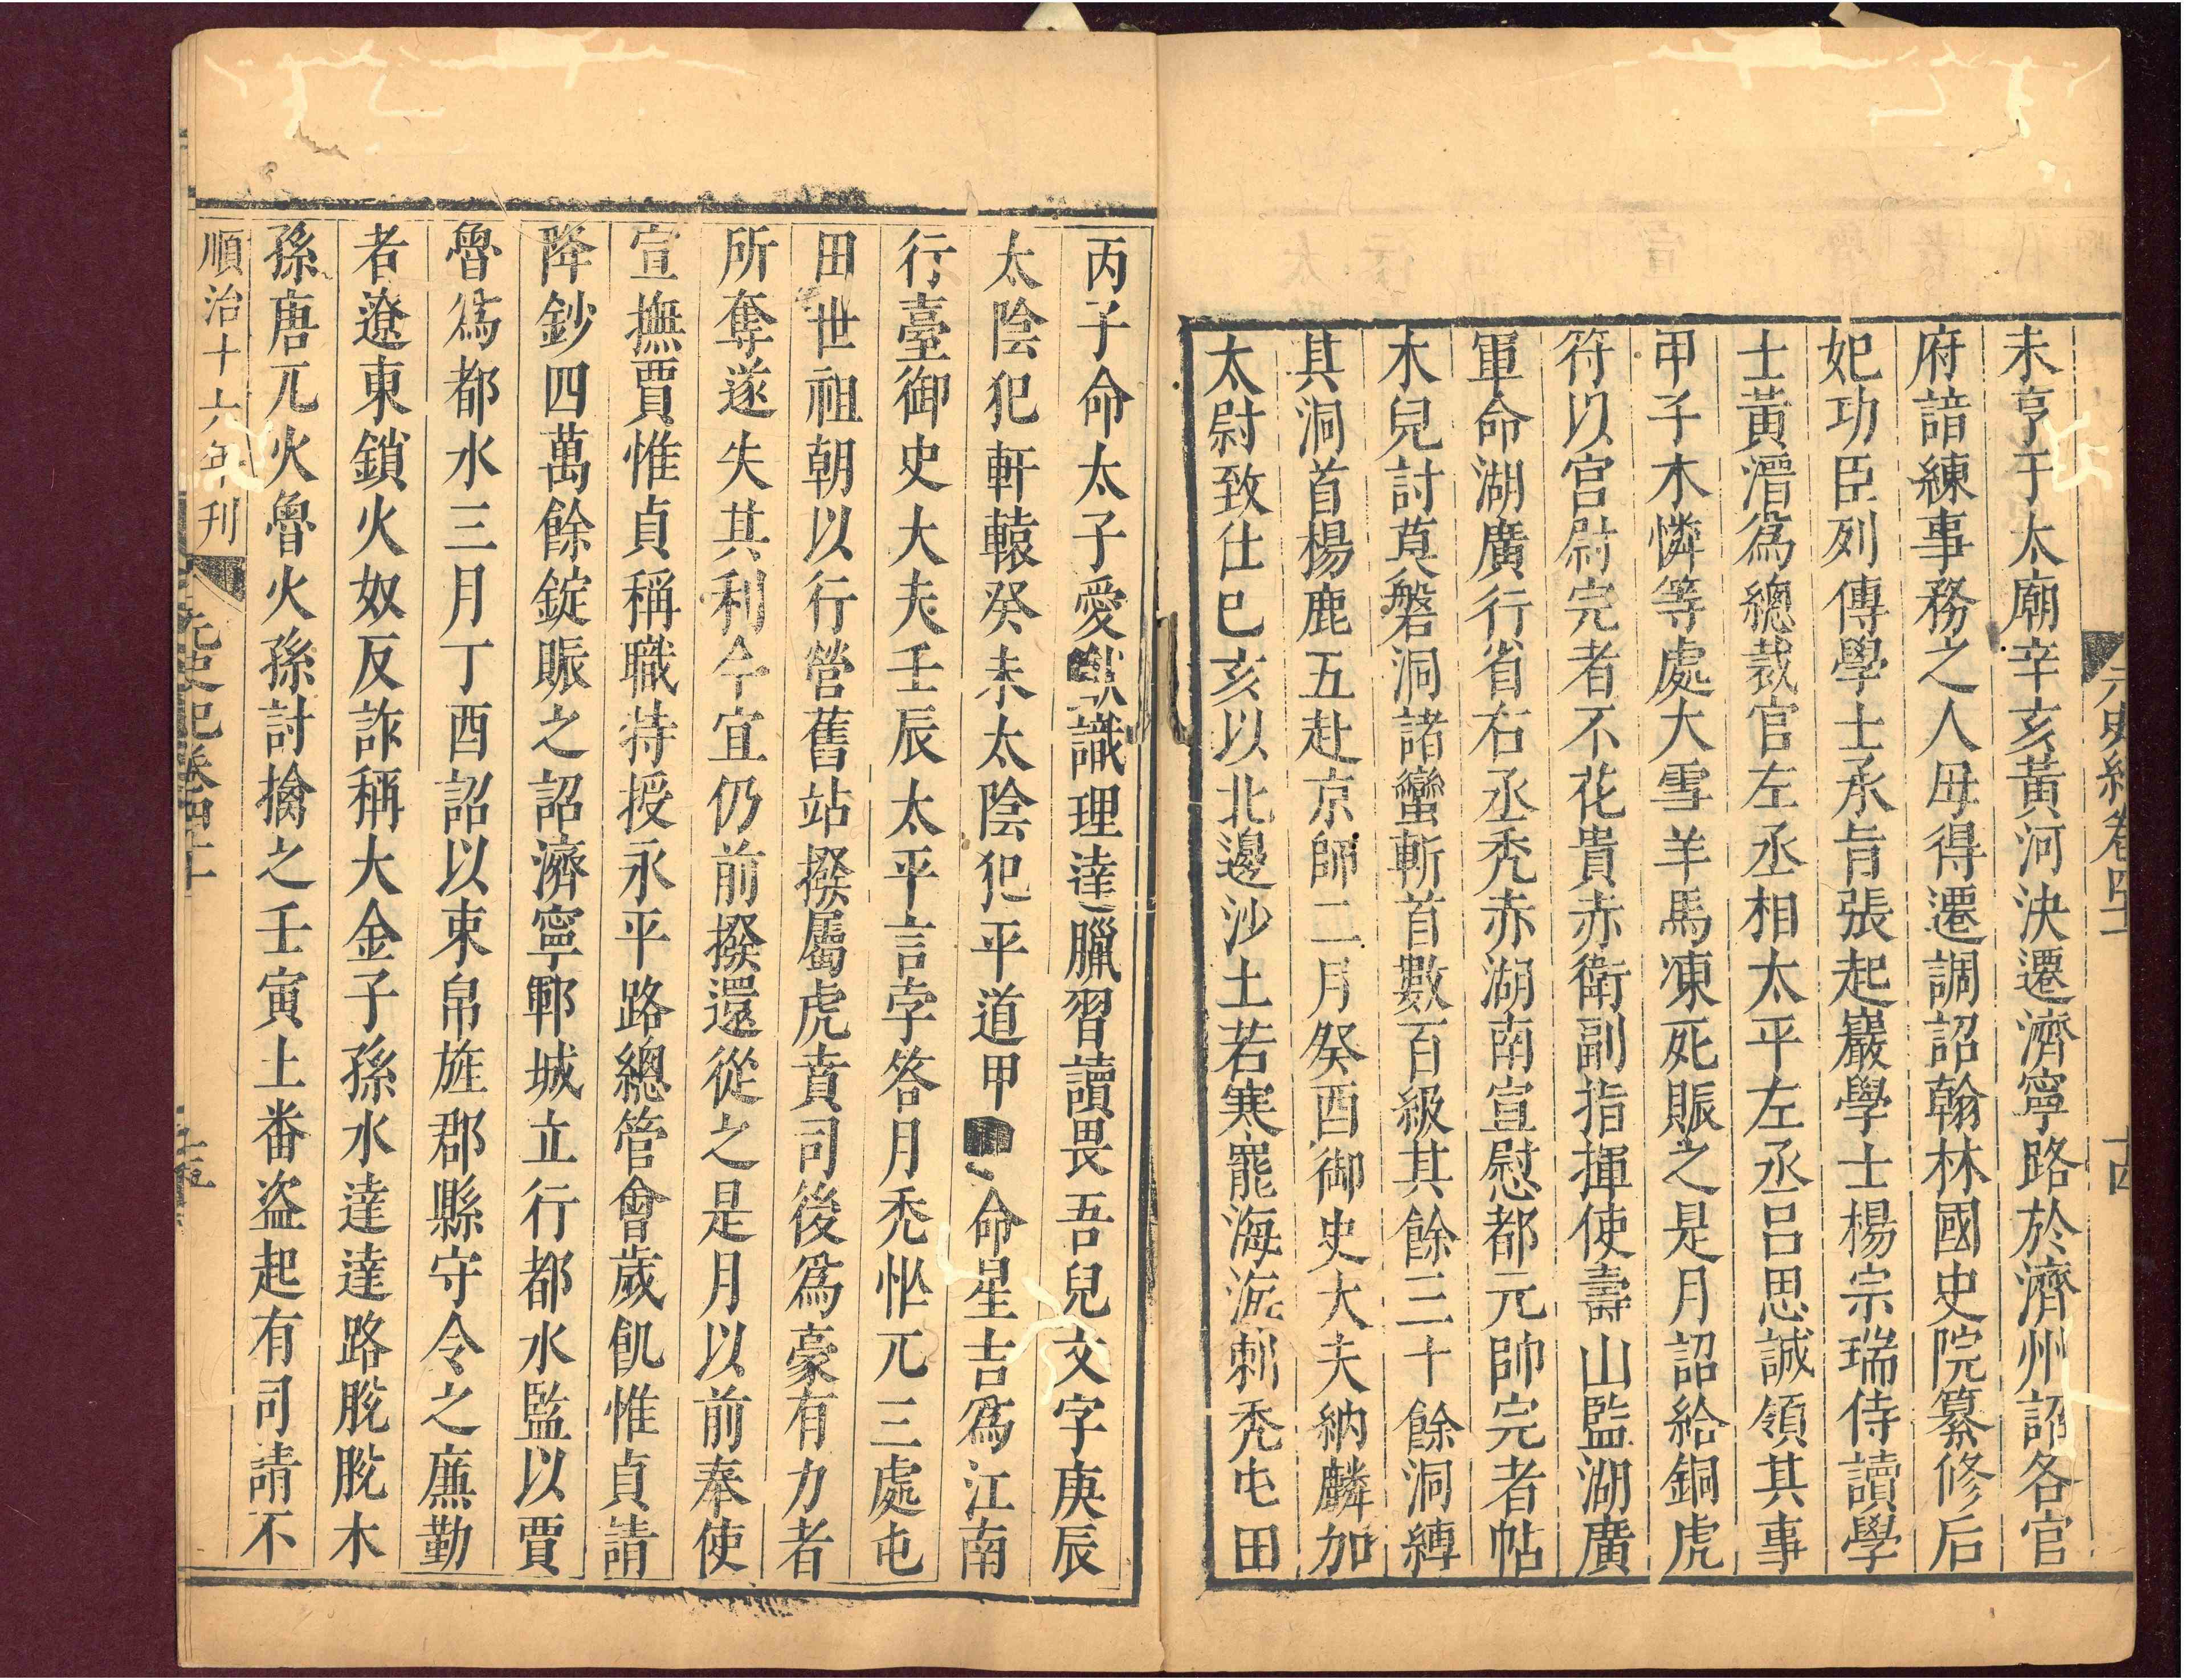 未亨于太廟辛亥黃河決遷濟寧路於濟州詔各官
府諳練事務之人毋得遷調詔翰林國史院纂修后
妃功臣列傳學士承旨張起巖學士楊宗瑞侍讀學
士黃溍為總裁官左丞相太平左丞呂思誠領其事
甲子木憐等處大雪羊馬凍死賑之是月詔給銅虎
符以宮尉完者不花貴赤衛副指揮使壽山監湖廣
軍命湖廣行省右丞禿赤湖南宣慰都元帥完者帖
木兒討莫磐洞諸蠻斬首數百級其餘三十餘洞縛
其洞首楊鹿五赴京師二月癸酉御史大夫納麟加
太尉致仕巳亥以北邊沙土苦寒罷海海剌禿屯田
丙子命太子愛識理達臘習讀畏吾兒文字庚辰
太陰犯軒轅癸未太陰犯平道甲命星吉為江南
行臺御史大夫壬辰太平言孛答月禿怯兀三處屯
田世祖朝以行營舊站撥屬虎賁司後為豪有力者
所奪遂失其利今宜仍前撥還從之是月以前奉使
宣撫賈惟貞稱職特授永平路總管會歲飢惟貞請
降鈔四萬餘錠賑之詔濟寧鄆城立行都水監以賈
魯為都水三月丁酉詔以束帛旌郡縣守令之廉勤
者遼東鎖火奴反詐稱大金子孫水達達路脫脫木
孫唐兀火魯火孫討擒之壬寅土番盜起有司請不
順治十六年刊
元史紀卷四十一
十五